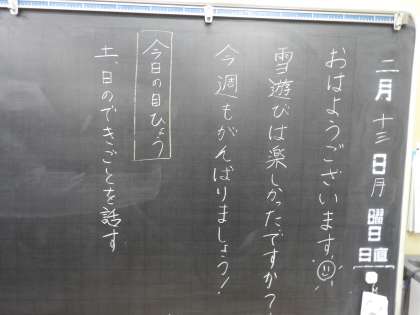 二月十三日月曜日
日直
おはようございます
雪遊びは楽しかったですか？
今週もがんばりましょう！
今日の目ひょう
土、日のできごとを話す